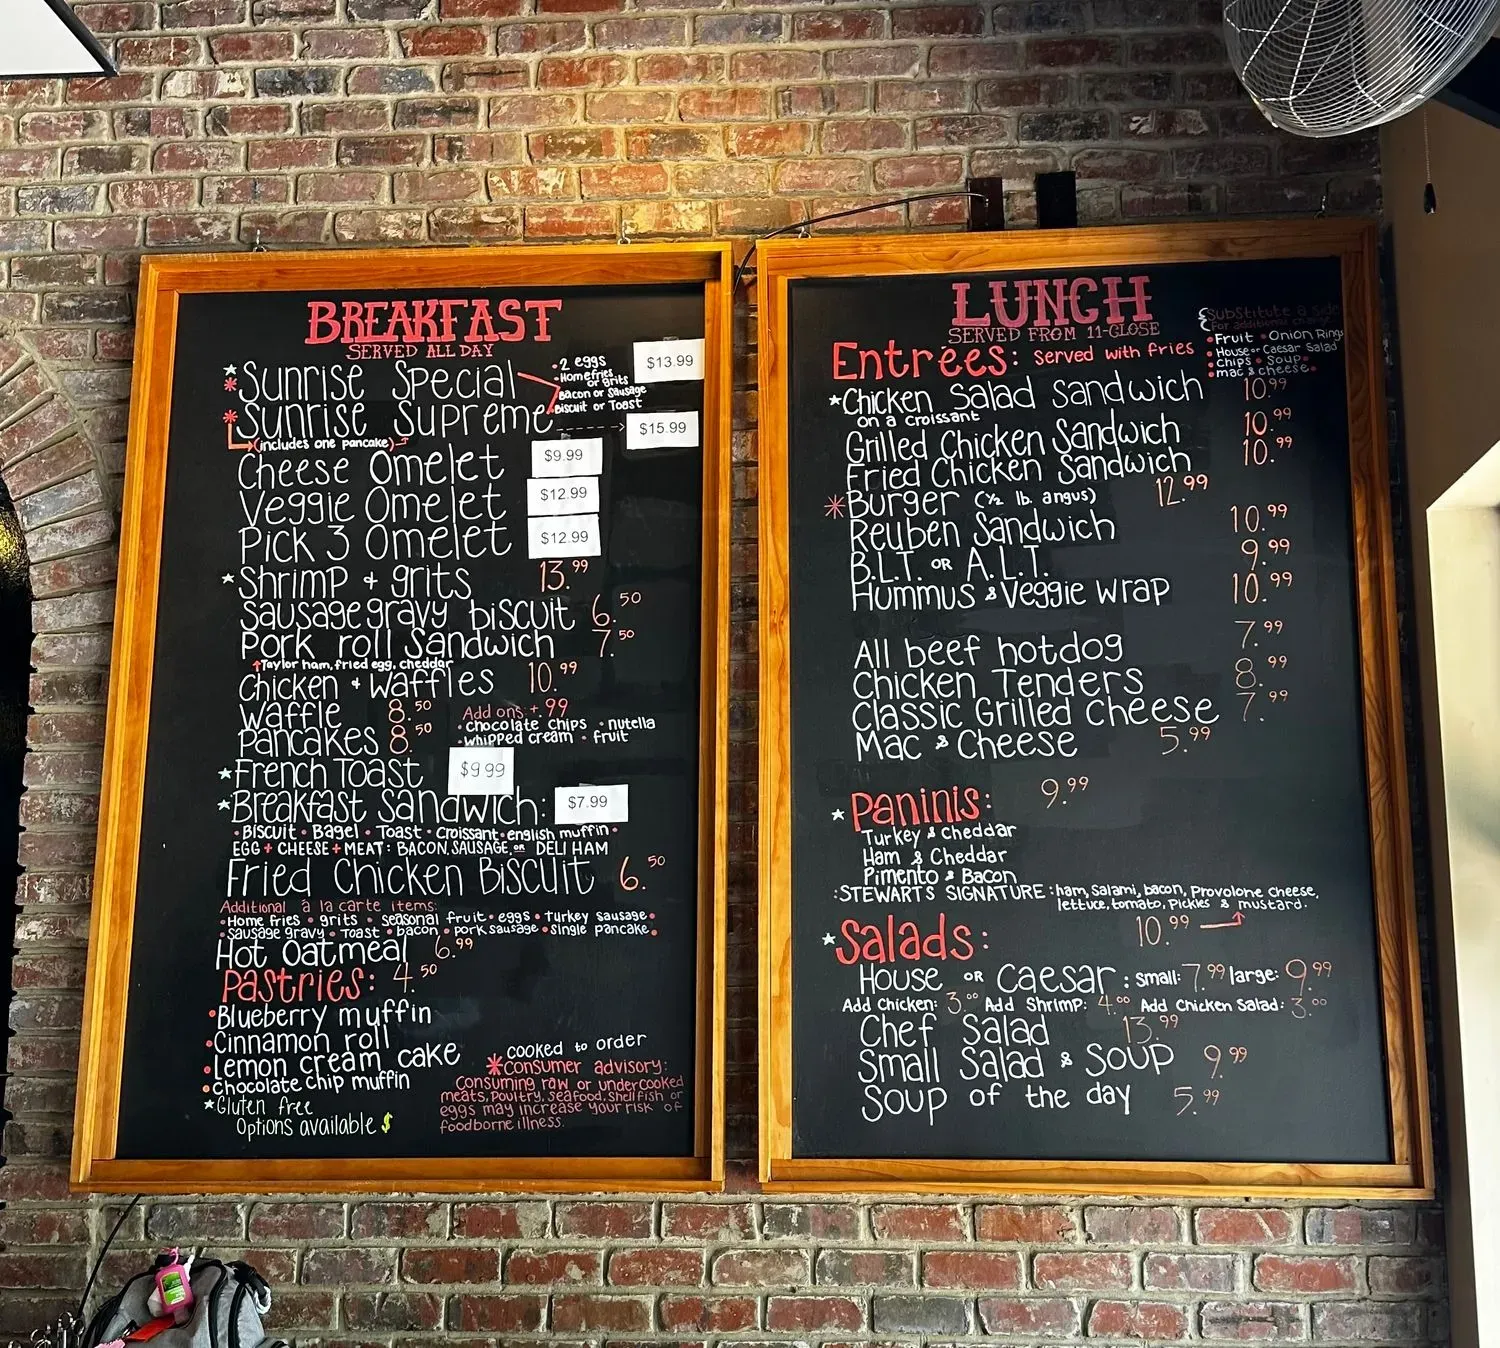 BREAKFAST
SERVED ALL DAY
* Sunrise Special • 2 eggs $13.99
• Homefries or grits
Bacon or Sausage
Biscuit or Toast
* Sunrise Supreme $15.99
(includes one pancake)
Cheese Omelet $9.99
Veggie Omelet $12.99
Pick 3 Omelet $12.99
* Shrimp + grits 13.99
Sausage gravy biscuit 6.50
Pork roll Sandwich 7.50
↑Taylor ham, fried egg, cheddar
Chicken + Waffles 10.99
Waffle 8.50 Add ons: + 99
• chocolate chips • nutella
Pancakes 8.50 • whipped cream • fruit
* French Toast $9 99
* Breakfast Sandwich: $7.99
• Biscuit • Bagel • Toast • Croissant • english muffin •
EGG + CHEESE + MEAT: BACON, SAUSAGE, or DELI HAM
Fried Chicken Biscuit 6.50
Additional à la carte items:
• Home fries • grits • seasonal fruit • eggs • Turkey sausage •
• Sausage gravy • Toast • bacon • pork sausage • single pancake •
Hot Oatmeal 6.99
Pastries: 4.50
• Blueberry muffin
• Cinnamon roll
• Lemon cream cake
• Chocolate chip muffin
* Gluten free
Options available $
cooked to order
* Consumer advisory:
Consuming raw or undercooked
meats, Poultry, seafood, Shellfish or
eggs may increase your risk of
foodborne illness.
LUNCH
SERVED FROM 11-CLOSE
Substitute a side
For additional
• Fruit • Onion Rings
• House or Caesar Salad
• Chips • Soup •
• mac & cheese •
Entrées: Served with fries
* Chicken Salad Sandwich 10.99
on a croissant
Grilled Chicken Sandwich 10.99
Fried Chicken Sandwich 10.99
* Burger (½ lb. angus) 12.99
Reuben Sandwich 10.99
B.L.T. OR A.L.T. 9.99
Hummus & Veggie wrap 10.99
All beef hotdog 7.99
Chicken Tenders 8.99
Classic Grilled Cheese 7.99
Mac & Cheese 5.99
* Paninis: 9.99
Turkey & Cheddar
Ham & Cheddar
Pimento & Bacon
:STEWARTS SIGNATURE: ham, Salami, bacon, Provolone cheese,
lettuce, tomato, Pickles & mustard.
10.99
* Salads:
House OR Caesar: small: 7.99 large: 9.99
Add Chicken: 3.00 Add Shrimp: 4.00 Add Chicken Salad: 3.00
Chef Salad 13.99
Small Salad & Soup 9.99
Soup of the day 5.99